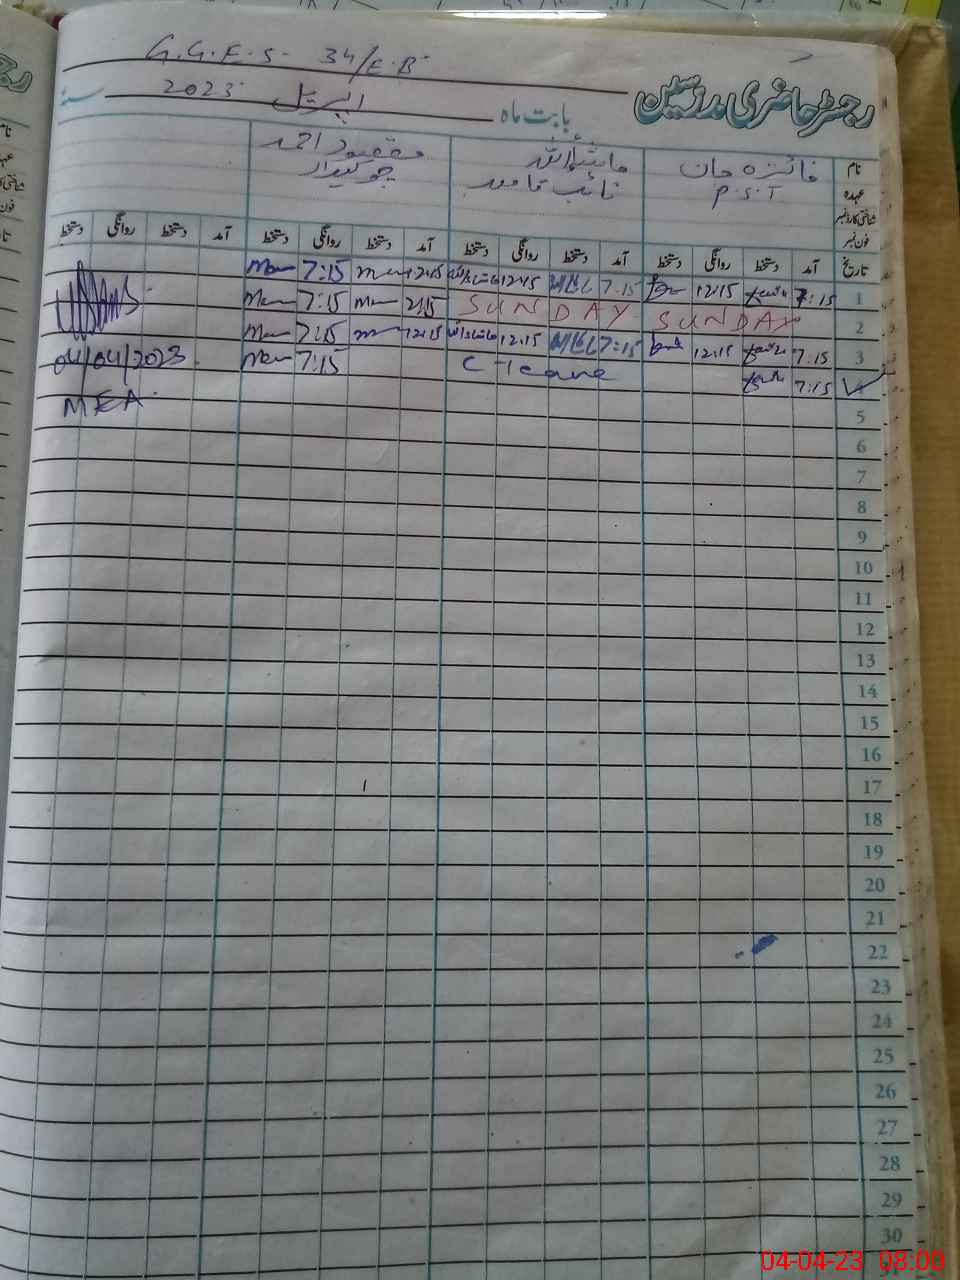 G.G.E.S. 34/E.B
رجسٹر حاضری مدرسین
بابت ماہ اپریل 2023 سنہ
نام فائزہ خان ماشاءاللہ مقصود احمد
عہدہ P.S.T نائب قاصد چوکیدار
شناختی کارڈ نمبر
فون نمبر
تاریخ آمد دستخط روانگی دستخط آمد دستخط روانگی دستخط آمد دستخط روانگی دستخط آمد دستخط روانگی دستخط
1 7:15 12:15 7:15 12:15 12:15 7:15
2 SUNDAY SUNDAY 7:15
3 7:15 12:15 7:15 12:15 12:15 7:15
4 7:15 C-leave 7:15
04/04/2023
MEA
5
6
7
8
9
10
11
12
13
14
15
16
17
18
19
20
21
22
23
24
25
26
27
28
29
30
04-04-23 08:00